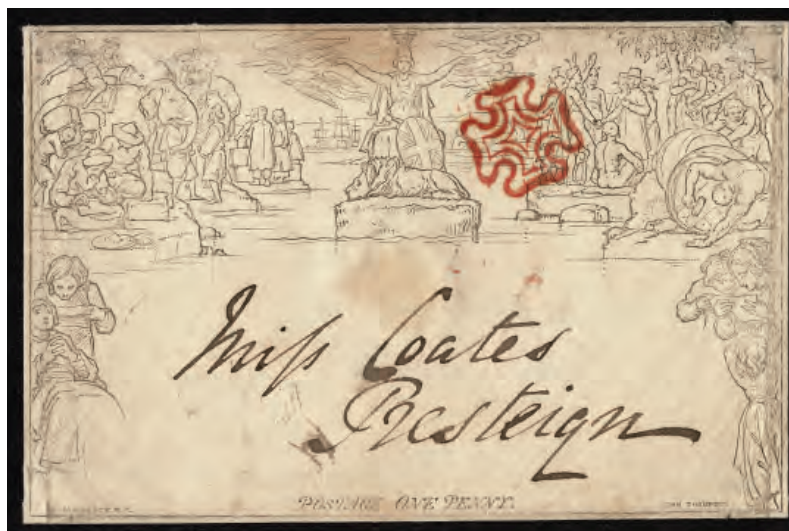 Miss Coates
Presteign
POSTAGE ONE PENNY.